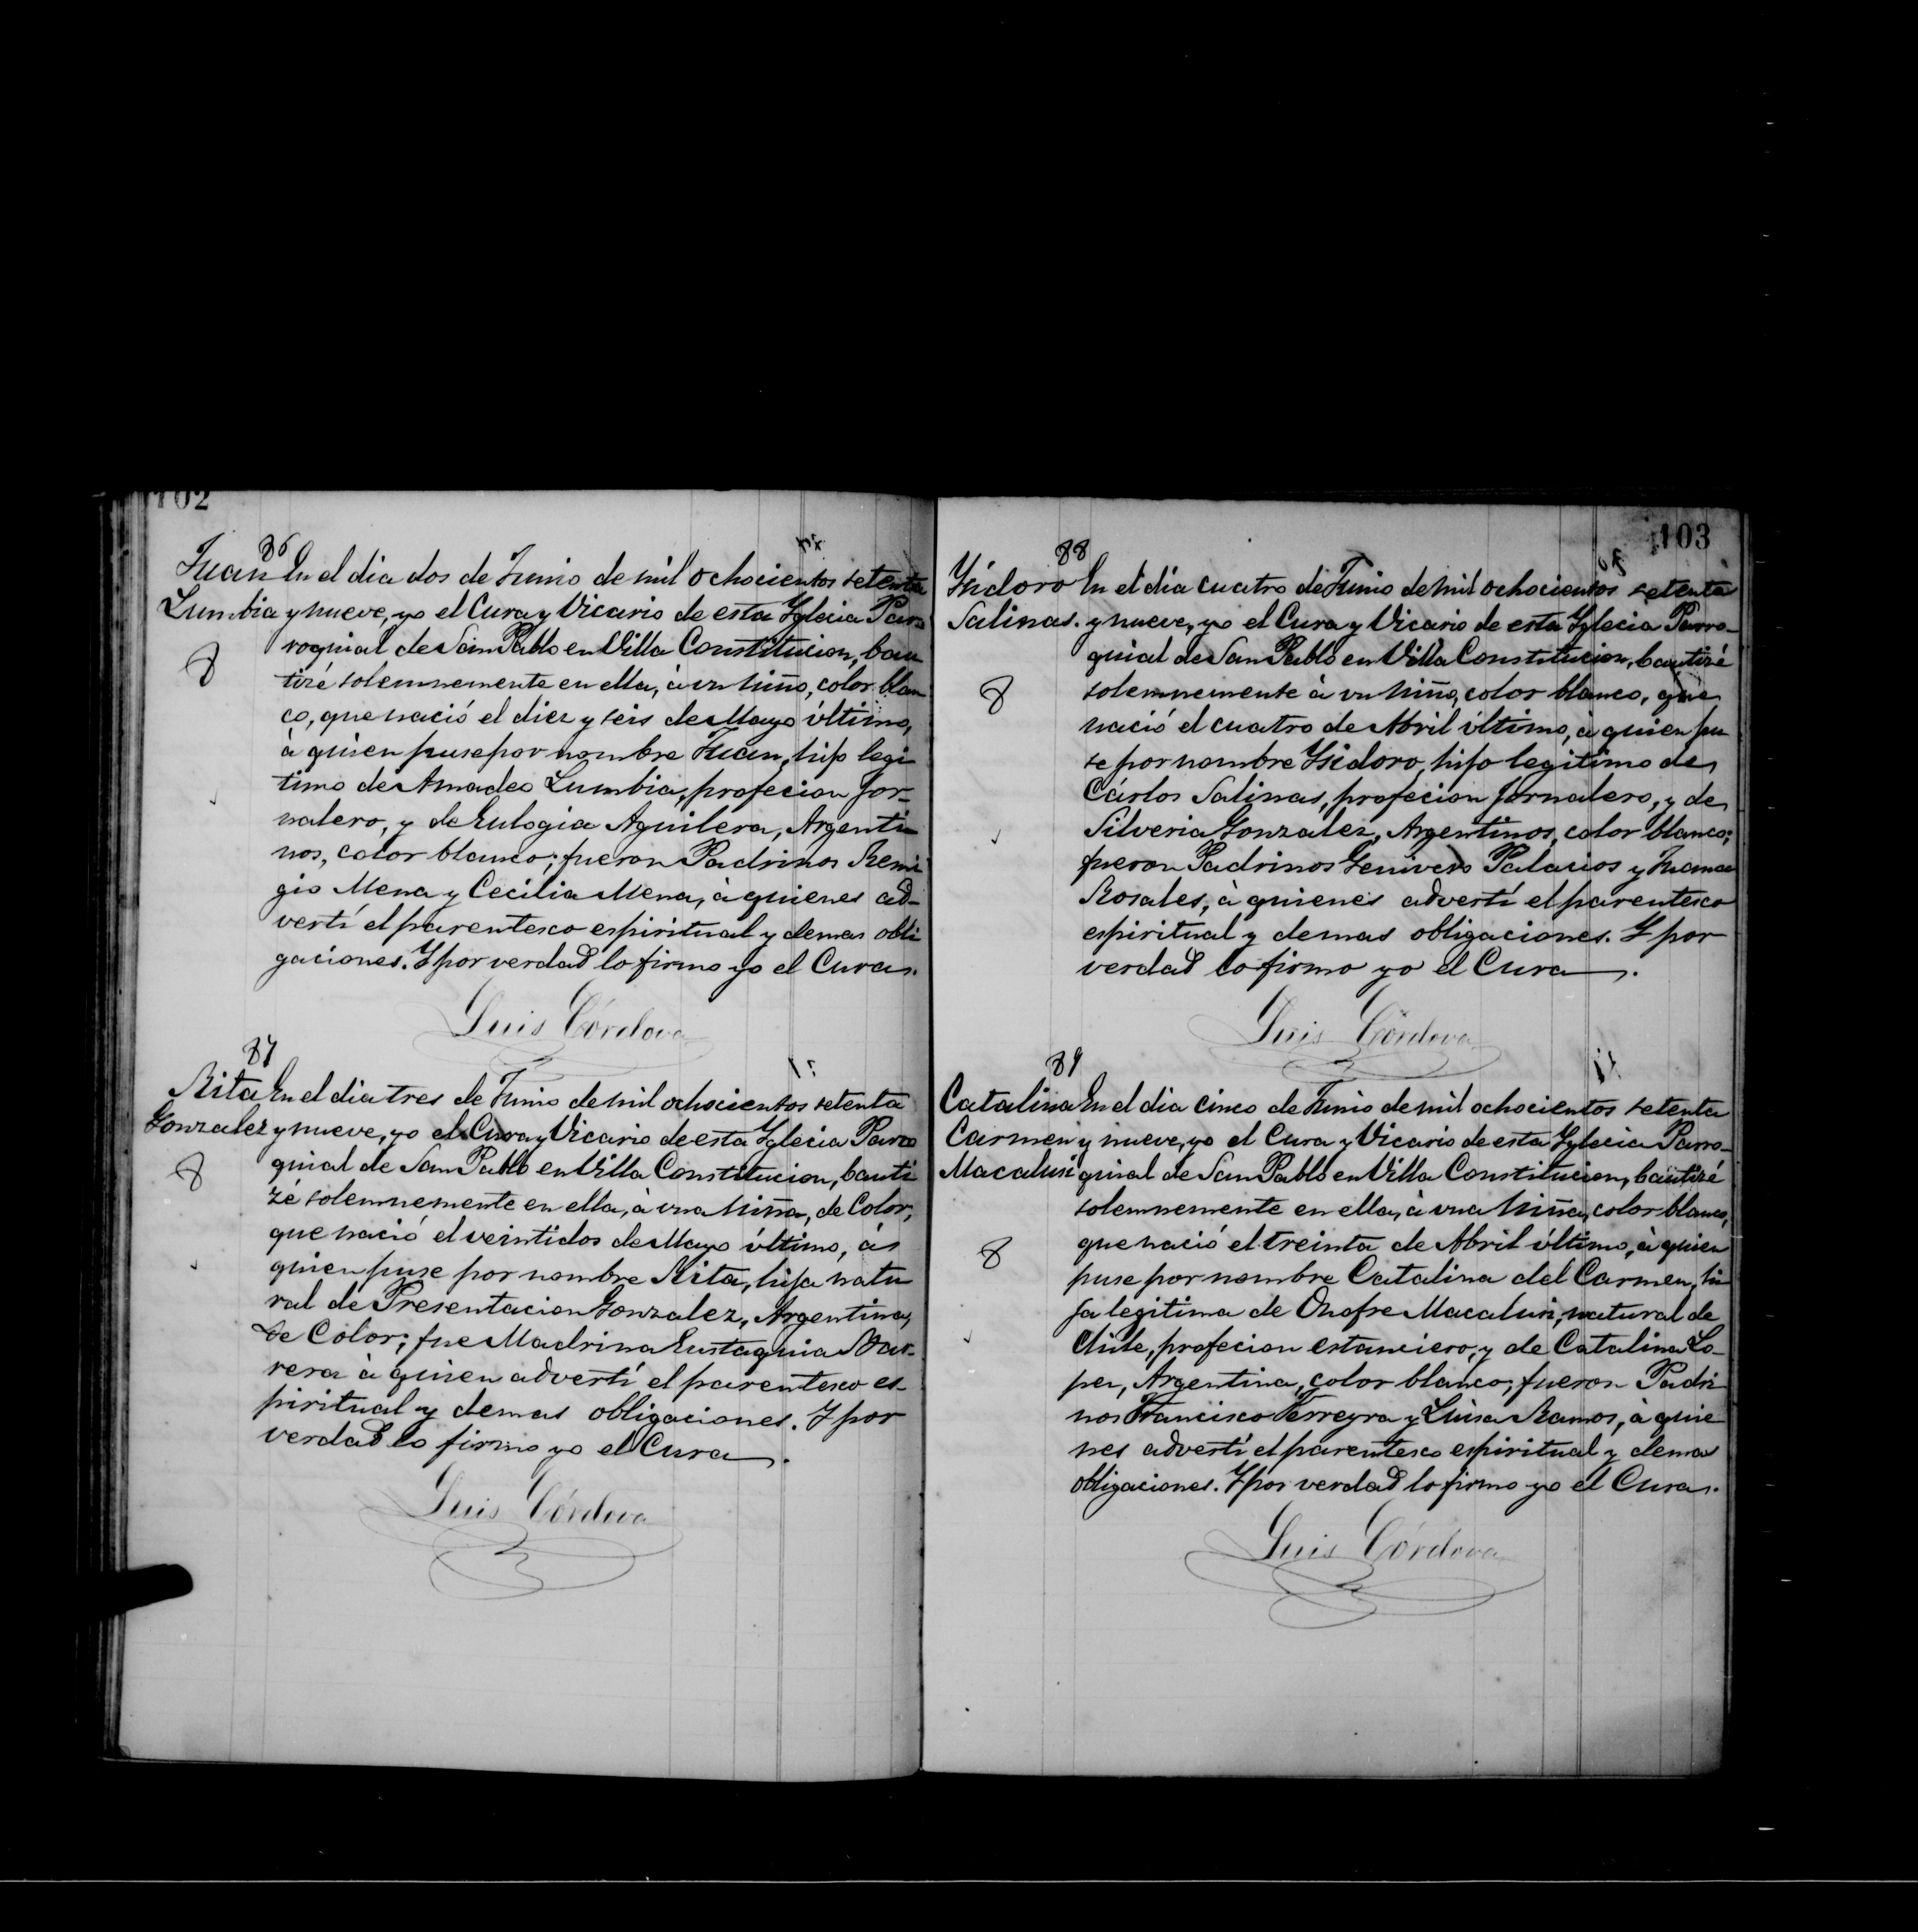 102
86
Juan En el dia dos de Junio de mil ochocientos setenta
Lumbia y nueve, yo el Cura y Vicario de esta Yglecia Par
roquial de San Pablo en Villa Constitucion, bau
tizé solemnemente en ella, à un Niño, color blan
co, que nació el diez y seis de Mayo último,
à quien puse por nombre Juan, hijo legi
timo de Amadeo Lumbia, profecion Jor-
nalero, y de Eulogia Aguilera, Argenti
nos, color blanco; fueron Padrinos Remi
gio Mena y Cecilia Mena, à quienes ad-
vertí el parentesco espiritual y demas obli
gaciones. Y por verdad lo firmo yo el Cura.
Luis Córdova
87
Rita En el dia tres de Junio de mil ochocientos setenta
Gonzalez y nueve, yo el Cura y Vicario de esta Yglecia Parro
quial de San Pablo en Villa Constitucion, bauti
zé solemnemente en ella, à una Niña, de Color,
que nació el veintidos de Mayo último, à
quien puse por nombre Rita, hija natu
ral de Presentacion Gonzalez, Argentina,
de Color; fue Madrina Eustaquia Bar-
rera à quien advertí el parentesco es-
piritual y demas obligaciones. Y por
verdad lo firmo yo el Cura.
Luis Córdova
103
88
Ysidoro En el dia cuatro de Junio de mil ochocientos setenta
Salinas. y nueve, yo el Cura y Vicario de esta Yglecia Parro-
quial de San Pablo en Villa Constitucion, bautizé
solemnemente à un Niño, color blanco, que
nació el cuatro de Abril último, à quien pu
se por nombre Ysidoro, hijo legitimo de
Cárlos Salinas, profecion Jornalero, y de
Silveria Gonzalez, Argentinos, color blanco;
fueron Padrinos Genivero Palacios y Juana
Rosales, à quienes advertí el parentesco
espiritual y demas obligaciones. Y por
verdad lo firmo yo el Cura.
Luis Córdova
89
Catalina En el dia cinco de Junio de mil ochocientos setenta
Carmen y nueve, yo el Cura y Vicario de esta Yglecia Parro-
Macalusi quial de San Pablo en Villa Constitucion, bautizé
solemnemente en ella, à una Niña, color blanco,
que nació el treinta de Abril último, à quien
puse por nombre Catalina del Carmen, hi
ja legitima de Onofre Macalusi, natural de
Chile, profecion estanciero, y de Catalina Lo-
pez, Argentina, color blanco; fueron Padri
nos Francisco Ferreyra y Luisa Ramos, à quie
nes advertí el parentesco espiritual y demas
obligaciones. Y por verdad lo firmo yo el Cura.
Luis Córdova